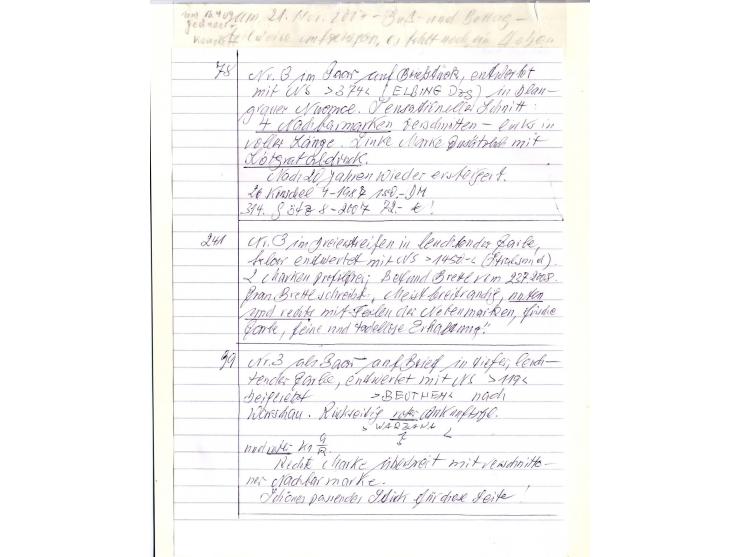 am 21. Nov. 2017 - Buß- und Bettag -
78 Nr. 3 im Paar auf Briefstück, entwertet
mit NS >374< (ELBING Dzg) in blau-
grauer Nuance. Sensationeller Schnitt:
4 Nachbarmarken verschnitten - links in
voller Länge. Linke Marke zusätzlich mit
Rötgrataldruck.
Nach 20 Jahren wieder ersteigert.
26 Kruschel 4-1987 150,-DM
314. Götz 8-2007 72.- €!
241 Nr. 3 im Dreierstreifen in leuchtender Farbe,
sauber entwertet mit NS >1450< (Stralsund).
2 Marken Befund Brettl vom 23.7.2008.
Frau Brettl schreibt: "Meist breitrandig, unten
und rechts mit Teilen der Nebenmarken, frische
Farbe, feine und tadellose Erhaltung!"
39 Nr. 3 als Paar auf Brief in tiefer, leuch-
tender Farbe, entwertet mit NS >119<
beigesetzt >BEUTHEN< nach
Warschau. Rückseitig roter Ankunftsstpl.
> WARZAWA <
und roter K1 9/R.
Rechte Marke überbreit mit verschnitte-
ner Nachbarmarke.
Schönes passendes Stück für diese Seite!